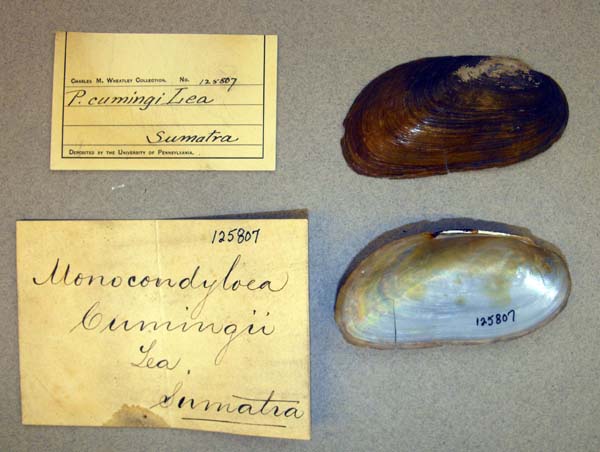 CHARLES M. WHEATLEY COLLECTION. No. 125807
P. cumingi Lea
Sumatra
DEPOSITED BY THE UNIVERSITY OF PENNSYLVANIA.
125807
Monocondyloea
Cumingii
Lea
Sumatra
125807